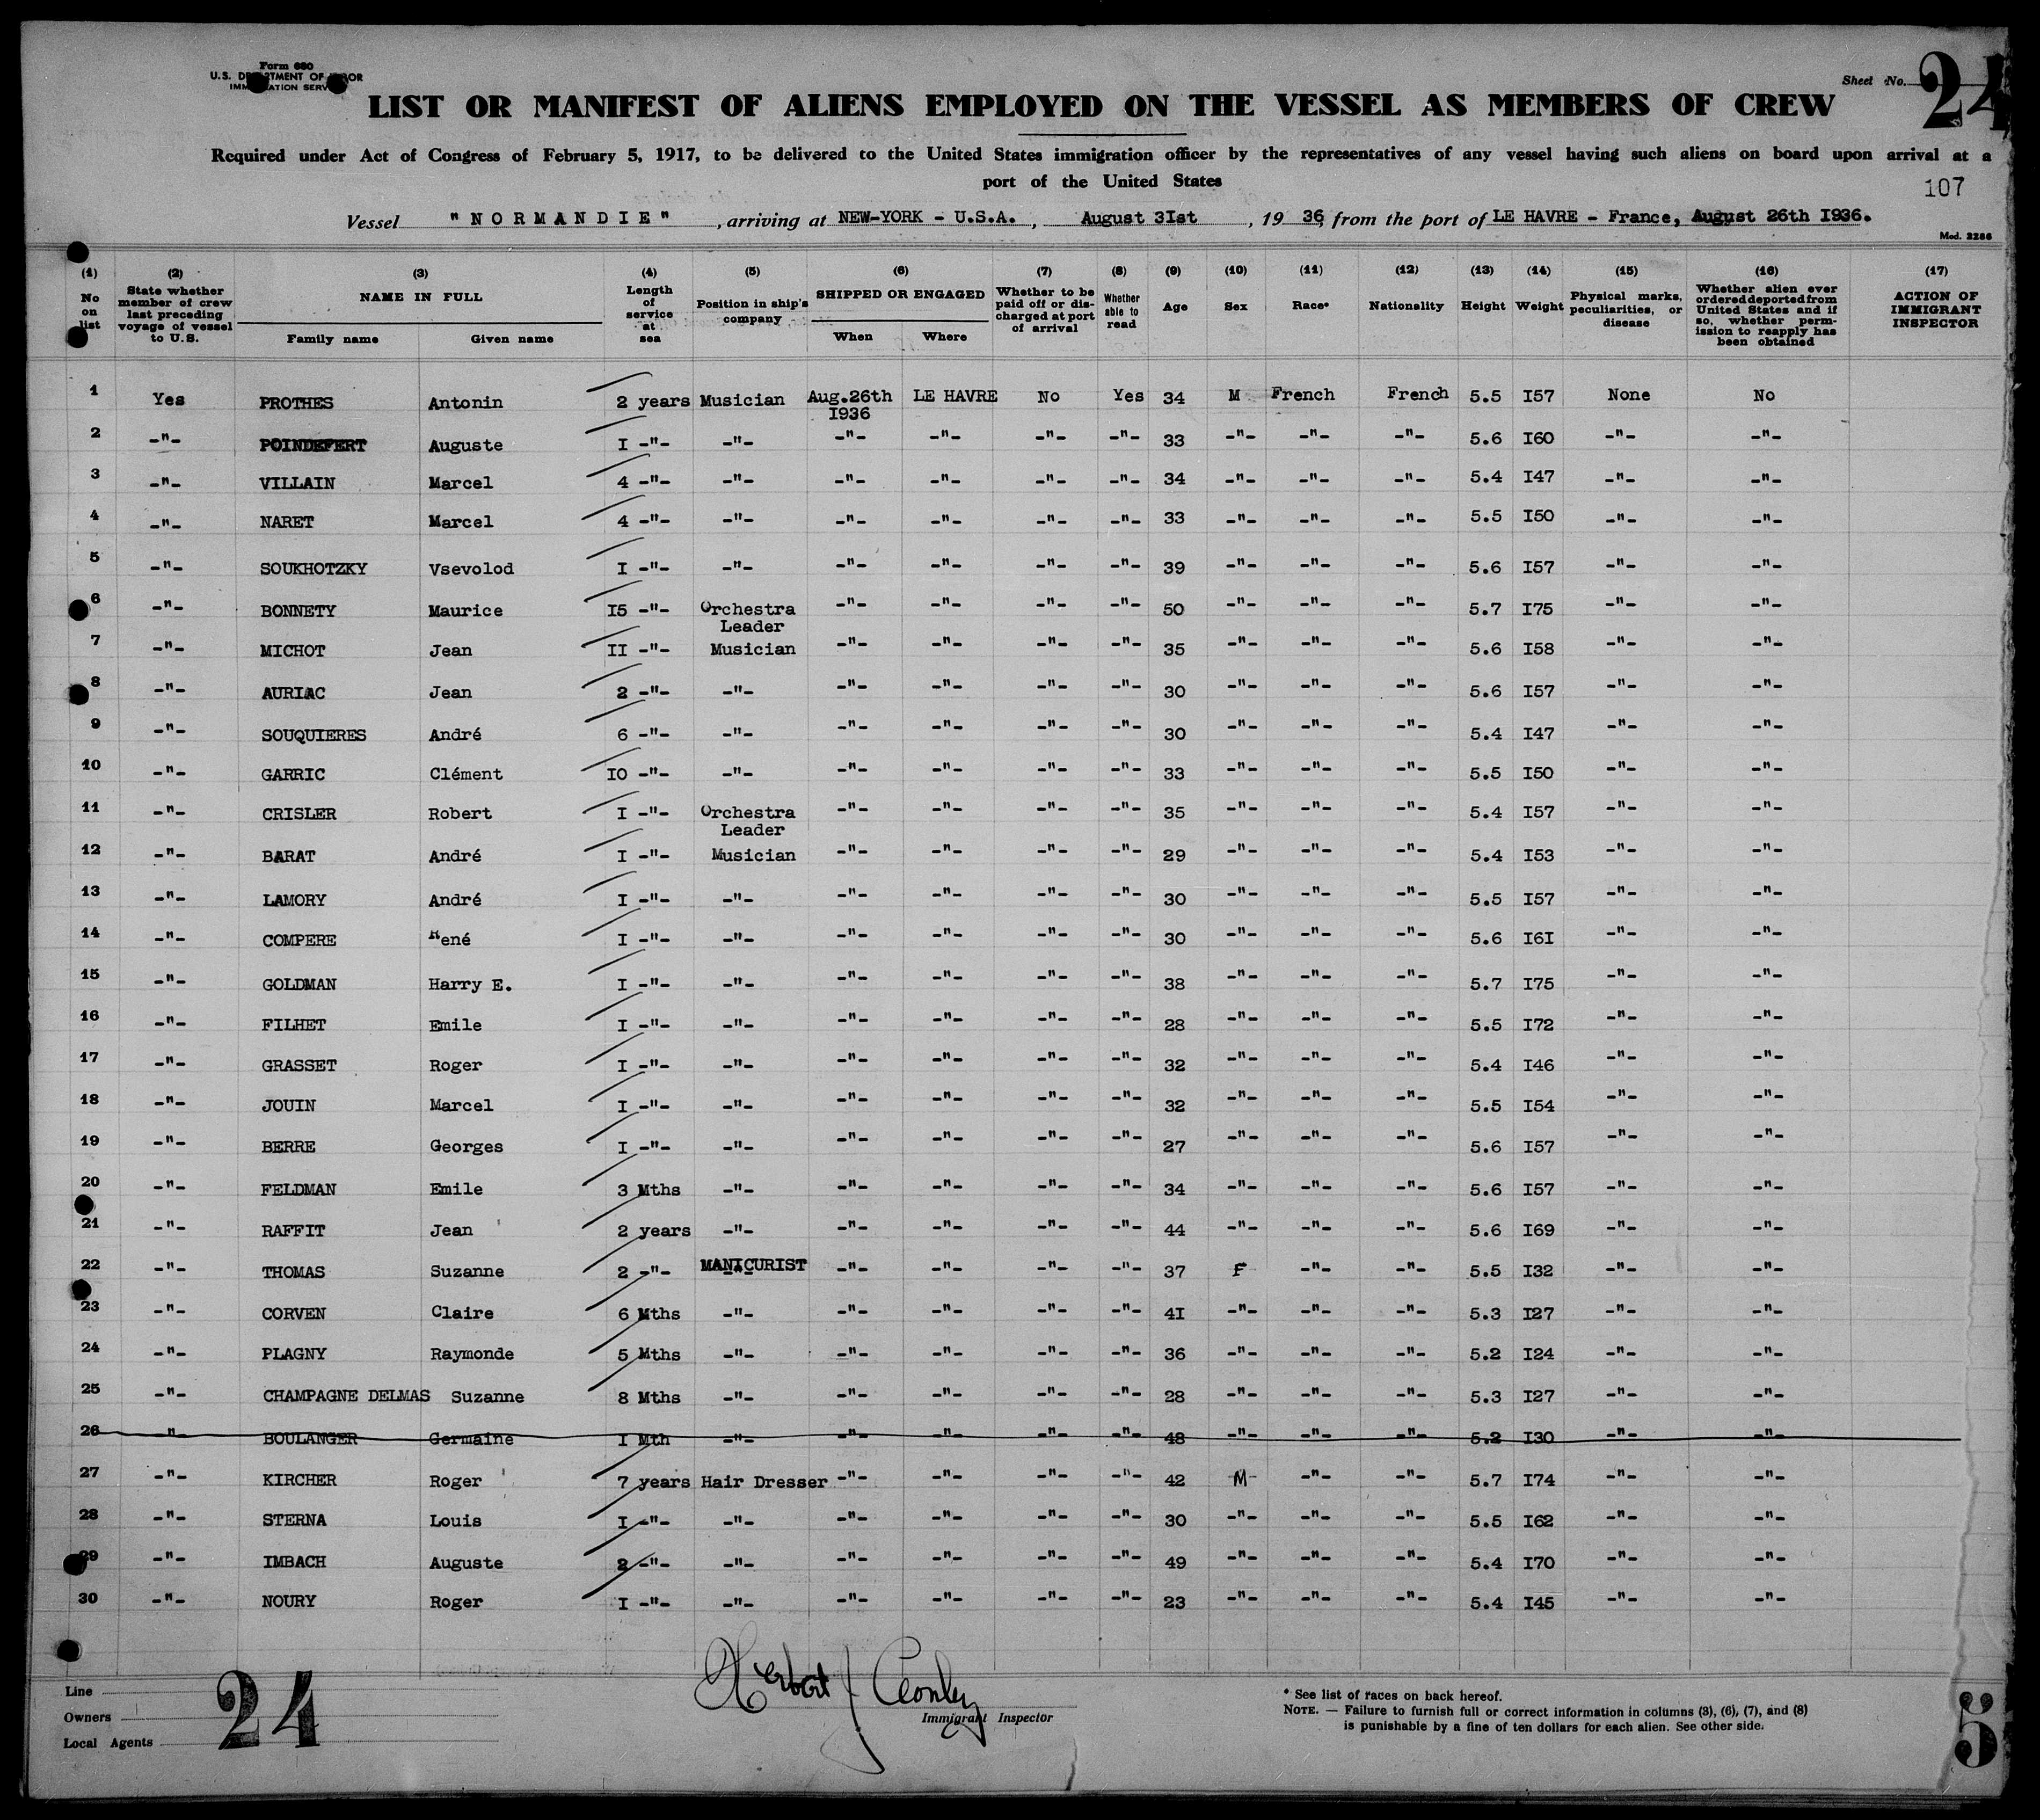 Form 680
U.S. DEPARTMENT OF LABOR
IMMIGRATION SERVICE
Sheet No. 24
LIST OR MANIFEST OF ALIENS EMPLOYED ON THE VESSEL AS MEMBERS OF CREW
Required under Act of Congress of February 5, 1917, to be delivered to the United States immigration officer by the representatives of any vessel having such aliens on board upon arrival at a
port of the United States
107
Vessel "NORMANDIE", arriving at NEW-YORK - U.S.A., August 3Ist, 19 36, from the port of LE HAVRE - France, August 26th I936.
Mod. 2266
(1) No on list (2) State whether member of crew last preceding voyage of vessel to U.S. (3) NAME IN FULL Family name Given name (4) Length of service at sea (5) Position in ship's company (6) SHIPPED OR ENGAGED When Where (7) Whether to be paid off or discharged at port of arrival (8) Whether able to read (9) Age (10) Sex (11) Race* (12) Nationality (13) Height (14) Weight (15) Physical marks, peculiarities, or disease (16) Whether alien ever ordered deported from United States and if so, whether permission to reapply has been obtained (17) ACTION OF IMMIGRANT INSPECTOR
1 Yes PROTHES Antonin 2 years Musician Aug.26th I936 LE HAVRE No Yes 34 M French French 5.5 I57 None No
2 -"- POINDEFERT Auguste I -"- -"- -"- -"- -"- -"- 33 -"- -"- -"- 5.6 I60 -"- -"-
3 -"- VILLAIN Marcel 4 -"- -"- -"- -"- -"- -"- 34 -"- -"- -"- 5.4 I47 -"- -"-
4 -"- NARET Marcel 4 -"- -"- -"- -"- -"- -"- 33 -"- -"- -"- 5.5 I50 -"- -"-
5 -"- SOUKHOTZKY Vsevolod I -"- -"- -"- -"- -"- -"- 39 -"- -"- -"- 5.6 I57 -"- -"-
6 -"- BONNETY Maurice I5 -"- Orchestra Leader -"- -"- -"- -"- 50 -"- -"- -"- 5.7 I75 -"- -"-
7 -"- MICHOT Jean II -"- Musician -"- -"- -"- -"- 35 -"- -"- -"- 5.6 I58 -"- -"-
8 -"- AURIAC Jean 2 -"- -"- -"- -"- -"- -"- 30 -"- -"- -"- 5.6 I57 -"- -"-
9 -"- SOUQUIERES André 6 -"- -"- -"- -"- -"- -"- 30 -"- -"- -"- 5.4 I47 -"- -"-
10 -"- GARRIC Clément IO -"- -"- -"- -"- -"- -"- 33 -"- -"- -"- 5.5 I50 -"- -"-
11 -"- CRISLER Robert I -"- Orchestra Leader -"- -"- -"- -"- 35 -"- -"- -"- 5.4 I57 -"- -"-
12 -"- BARAT André I -"- Musician -"- -"- -"- -"- 29 -"- -"- -"- 5.4 I53 -"- -"-
13 -"- LAMORY André I -"- -"- -"- -"- -"- -"- 30 -"- -"- -"- 5.5 I57 -"- -"-
14 -"- COMPERE René I -"- -"- -"- -"- -"- -"- 30 -"- -"- -"- 5.6 I6I -"- -"-
15 -"- GOLDMAN Harry E. I -"- -"- -"- -"- -"- -"- 38 -"- -"- -"- 5.7 I75 -"- -"-
16 -"- FILHET Emile I -"- -"- -"- -"- -"- -"- 28 -"- -"- -"- 5.5 I72 -"- -"-
17 -"- GRASSET Roger I -"- -"- -"- -"- -"- -"- 32 -"- -"- -"- 5.4 I46 -"- -"-
18 -"- JOUIN Marcel I -"- -"- -"- -"- -"- -"- 32 -"- -"- -"- 5.5 I54 -"- -"-
19 -"- BERRE Georges I -"- -"- -"- -"- -"- -"- 27 -"- -"- -"- 5.6 I57 -"- -"-
20 -"- FELDMAN Emile 3 Mths -"- -"- -"- -"- -"- 34 -"- -"- -"- 5.6 I57 -"- -"-
21 -"- RAFFIT Jean 2 years -"- -"- -"- -"- -"- 44 -"- -"- -"- 5.6 I69 -"- -"-
22 -"- THOMAS Suzanne 2 -"- MANICURIST -"- -"- -"- -"- 37 F -"- -"- 5.5 I32 -"- -"-
23 -"- CORVEN Claire 6 Mths -"- -"- -"- -"- -"- 4I -"- -"- -"- 5.3 I27 -"- -"-
24 -"- PLAGNY Raymonde 5 Mths -"- -"- -"- -"- -"- 36 -"- -"- -"- 5.2 I24 -"- -"-
25 -"- CHAMPAGNE DELMAS Suzanne 8 Mths -"- -"- -"- -"- -"- 28 -"- -"- -"- 5.3 I27 -"- -"-
26 -"- BOULANGER Germaine I Mth -"- -"- -"- -"- -"- 48 -"- -"- -"- 5.2 I30 -"- -"-
27 -"- KIRCHER Roger 7 years Hair Dresser -"- -"- -"- -"- 42 M -"- -"- 5.7 I74 -"- -"-
28 -"- STERNA Louis I -"- -"- -"- -"- -"- -"- 30 -"- -"- -"- 5.5 I62 -"- -"-
29 -"- IMBACH Auguste 2 -"- -"- -"- -"- -"- -"- 49 -"- -"- -"- 5.4 I70 -"- -"-
30 -"- NOURY Roger I -"- -"- -"- -"- -"- -"- 23 -"- -"- -"- 5.4 I45 -"- -"-
Line
Owners
Local Agents
24
Herbert J Conley
Immigrant Inspector
* See list of races on back hereof.
NOTE. — Failure to furnish full or correct information in columns (3), (6), (7), and (8)
is punishable by a fine of ten dollars for each alien. See other side.
5